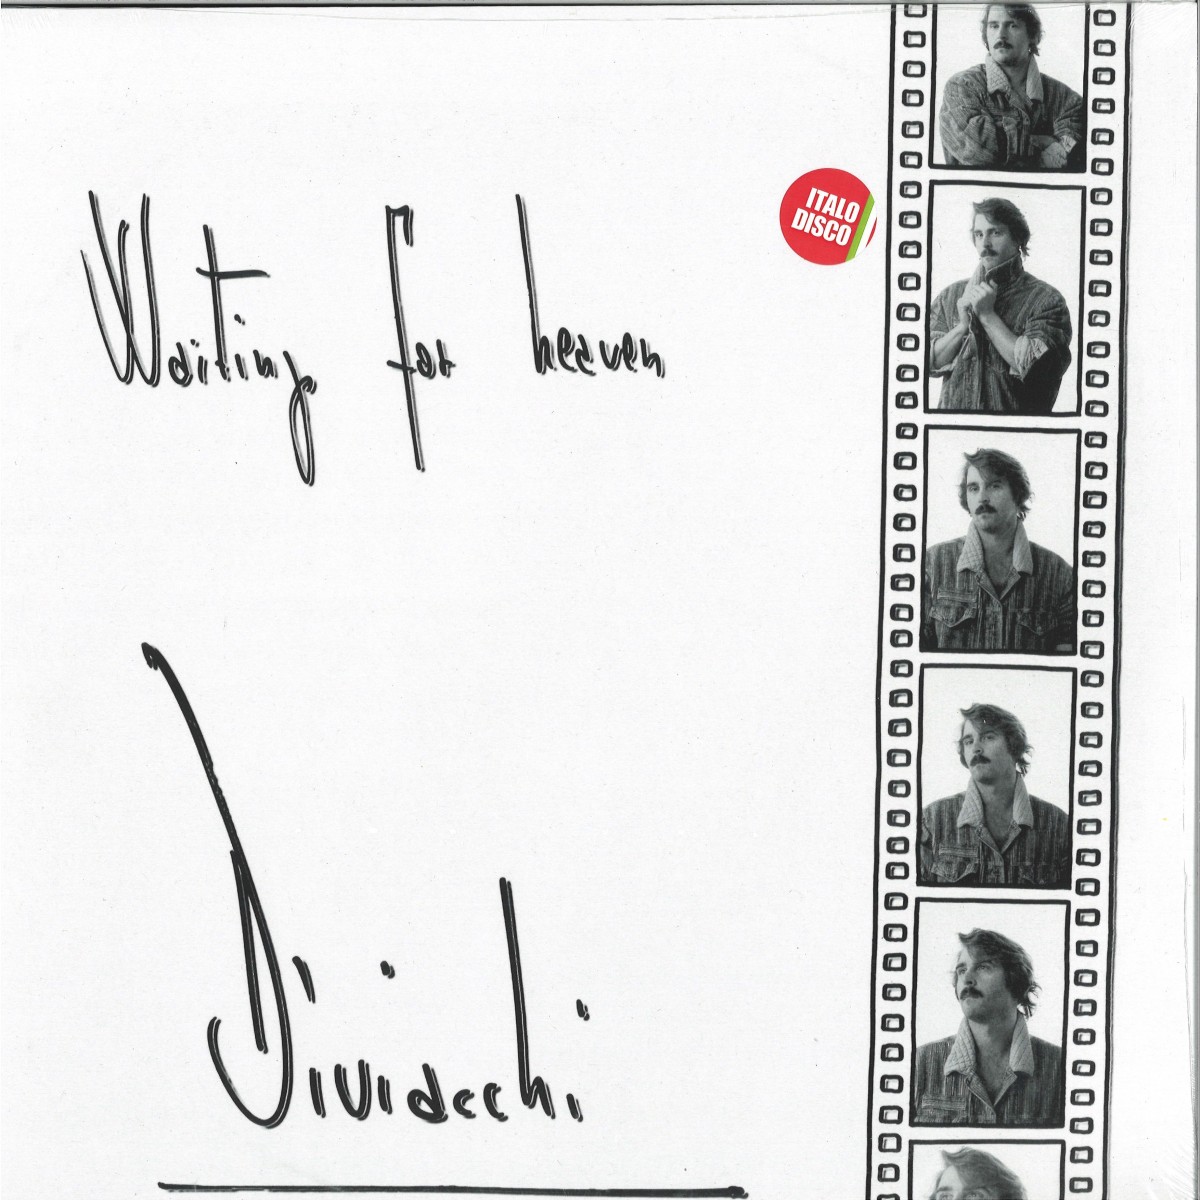 Waiting for heaven
ITALO
DISCO
Dividacchi